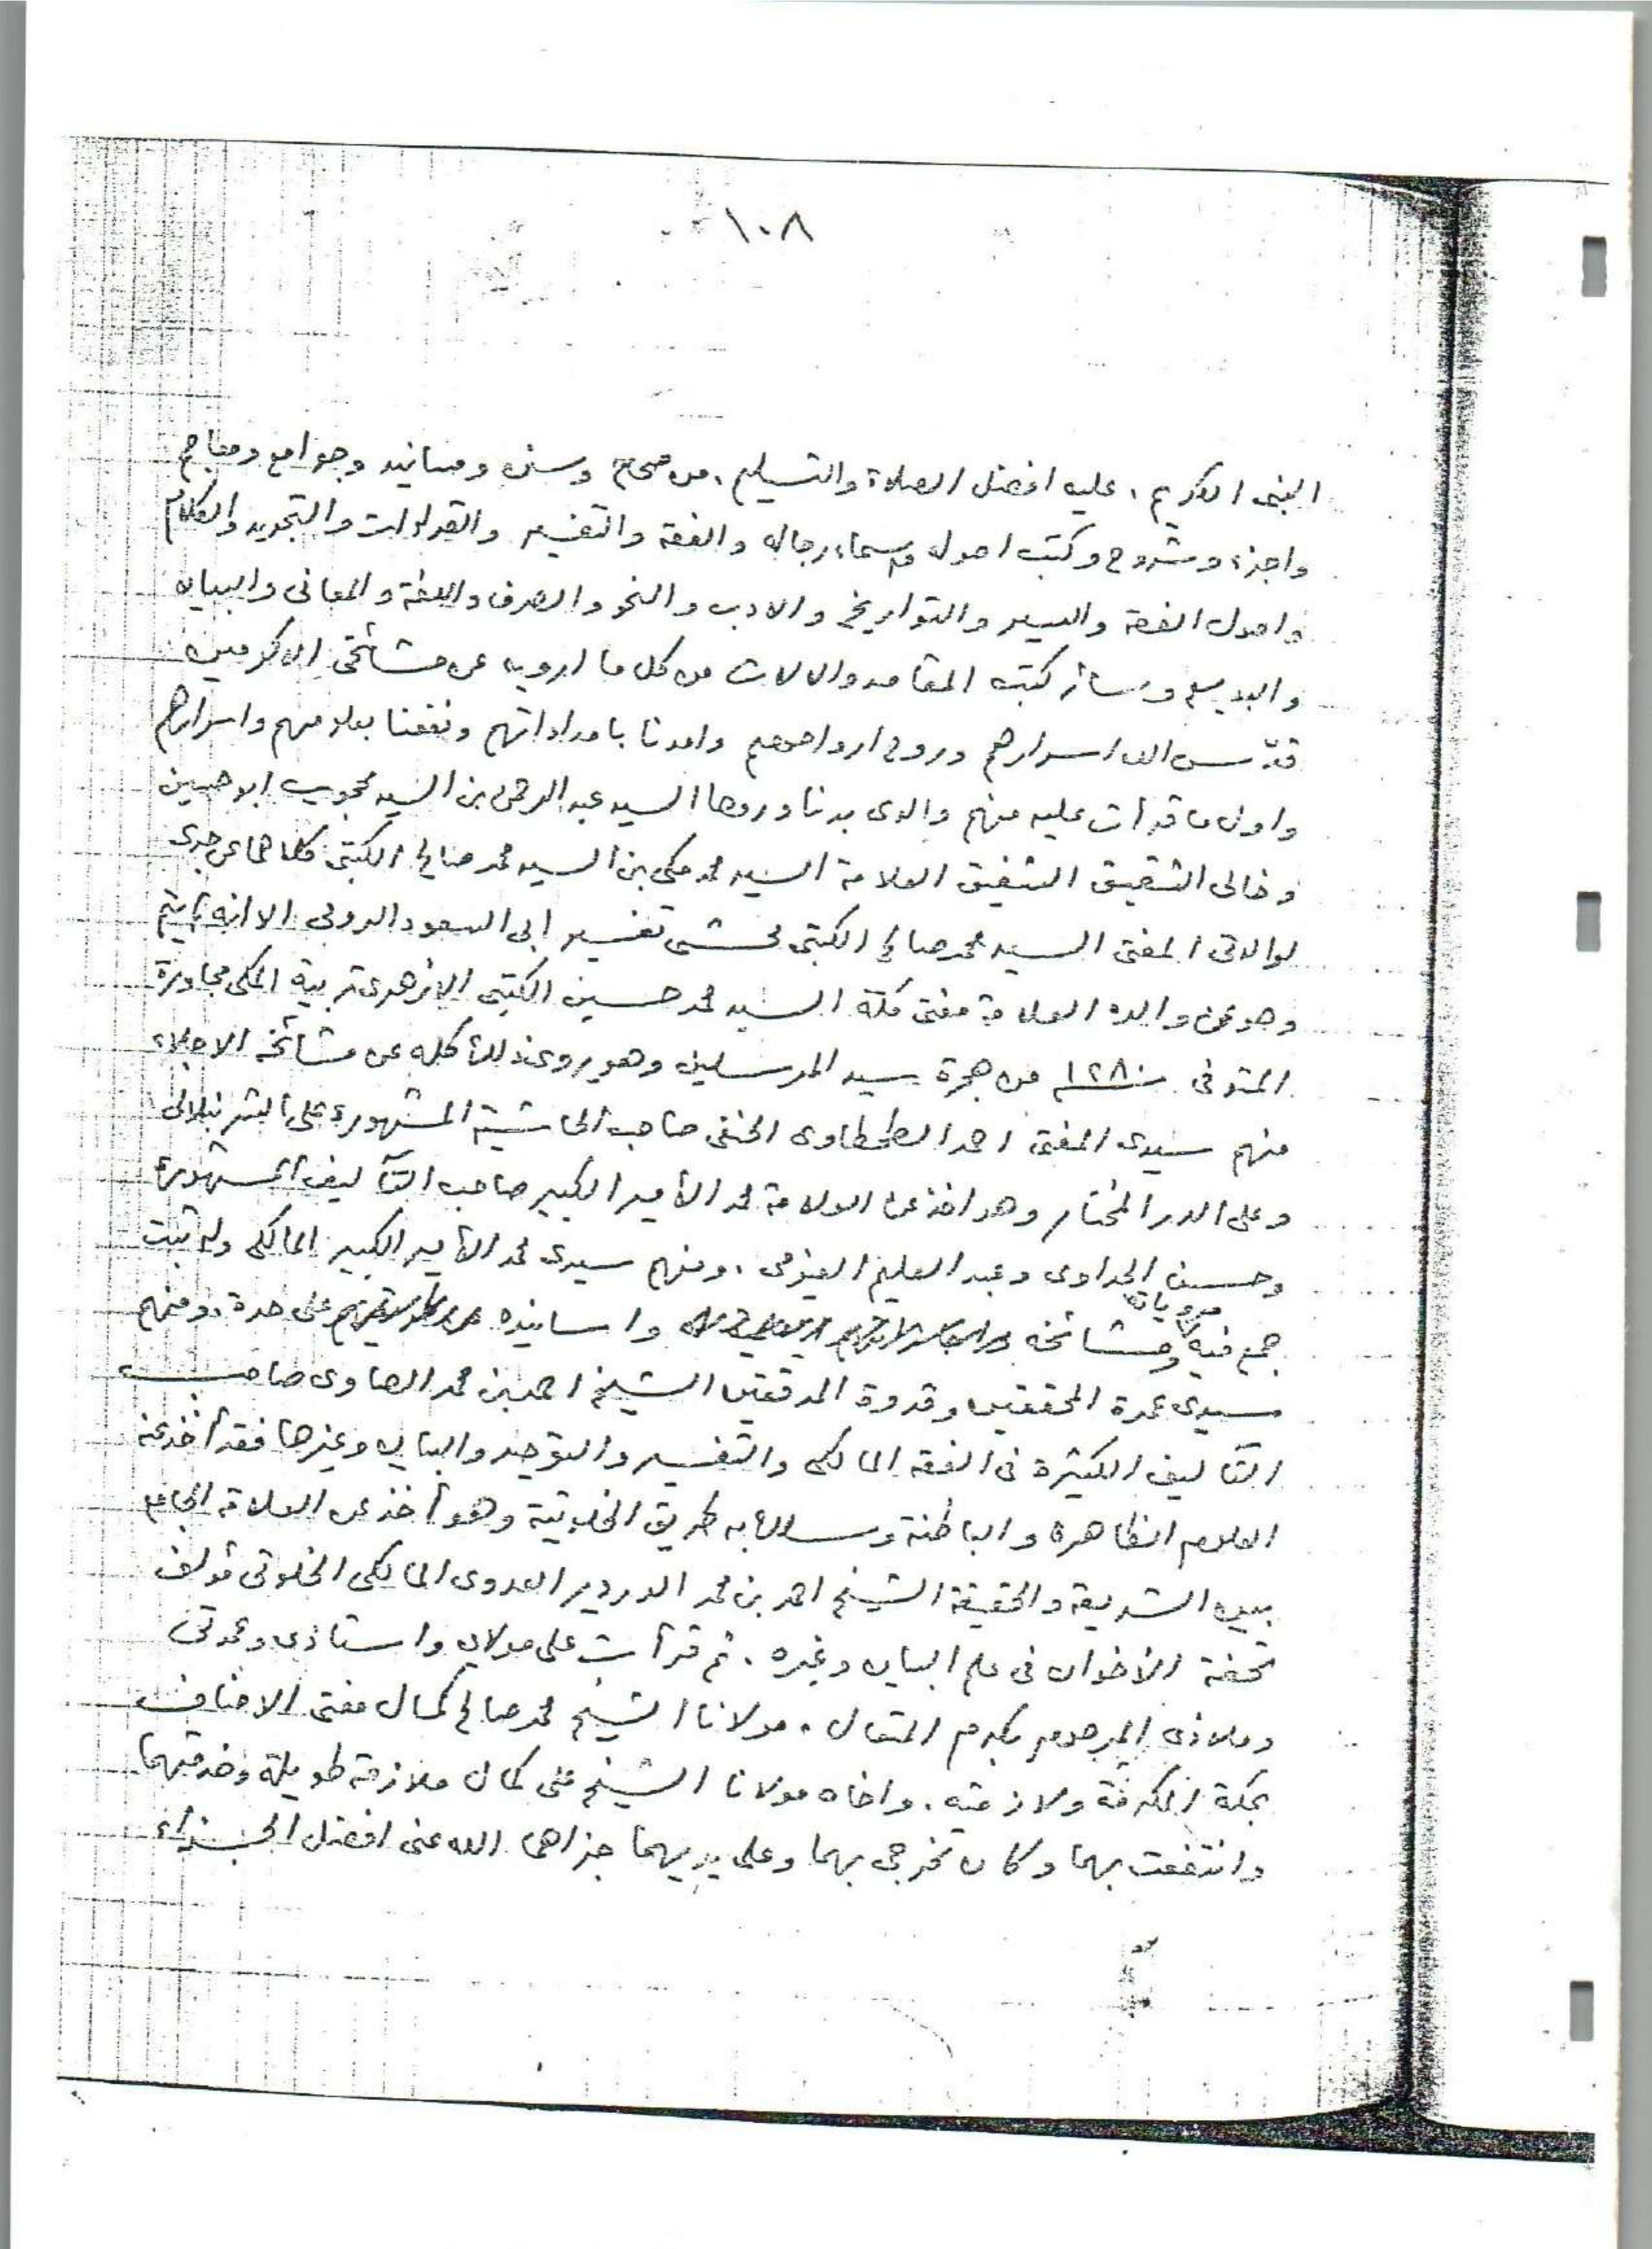 ١٠٨
النبى الكريم ، عليه افضل الصلاة والتسليم ، من صحاح وسنن ومسانيد وجوامع ومعاجم
واجزء وشروح وكتب اصوله واسماء رجاله والفقه والتفسير والقراءات والتجويد والكلام
واصول الفقه والسير والتواريخ والادب والنحو والصرف واللغة والمعانى والبيان
والبديع وسائر كتب المقاصد والالات من كل ما ارويه عن مشائخى الاكرمين
قدّس الله اسرارهم وروح ارواحهم وامدنا بامداداتهم ونفعنا بعلومهم واسرارهم
واول ما قرأت عليه منهم والدى بدنا وروحا السيد عبد الرحمن بن السيد محجوب ابو حسين
وخالى الشقيق الشفيق العلامة السيد محمد مكى بن السيد محمد صالح الكتبى كلاهما عن جدى
لوالدتى المفتى السيد محمد صالح الكتبى محشى تفسير ابى السعود الرومى الا انه لم يتم
وهو عن والده العلامة مفتى مكة السيد محمد حسين الكتبى الازهرى تربية المكى مجاورة
المتوفى سنة ١٢٨٠ من هجرة سيد المرسلين وهو يروى ذلك كله عن مشائخه الاجلاء
منهم سيدى المفتى احمد الطحطاوى الحنفى صاحب الحاشية المشهورة على الشرنبلالى
وعلى الدر المختار وهو اخذ عن العلامة محمد الأمير الكبير صاحب التآليف المشهورة
وحسن الجداوى وعبد العليم الفيومى ، ومنهم سيدى محمد الأمير الكبير المالكى وله ثبت
جمع فيه مروياته ومشائخه واسانيده على حدة ، ومنهم
سيدى عمدة المحققين وقدوة المدققين الشيخ احمد بن محمد الصاوى صاحب
التآليف الكثيرة فى الفقه المالكى والتفسير والتوحيد والبيان وغيرها فقد أخذ عنه
العلوم الظاهرة والباطنة وسلك به طريق الخلوتية وهو أخذ عن العلامة الجامع
بين الشريعة والحقيقة الشيخ احمد بن محمد الدردير العدوى المالكى الخلوتى مؤلف
تحفة الأخوان فى علم البيان وغيره . ثم قرأت على مولاى واستاذى وعمدتى
وملاذى المرحوم بكرم المتعال ، مولانا الشيخ محمد صالح كمال مفتى الاحناف
بمكة المكرمة ولازمته ، واخاه مولانا الشيخ على كمال ملازمة طويلة وخدمتهما
وانتفعت بهما وكان تخرجى بهما وعلى يديهما جزاهما الله عنى افضل الجزاء